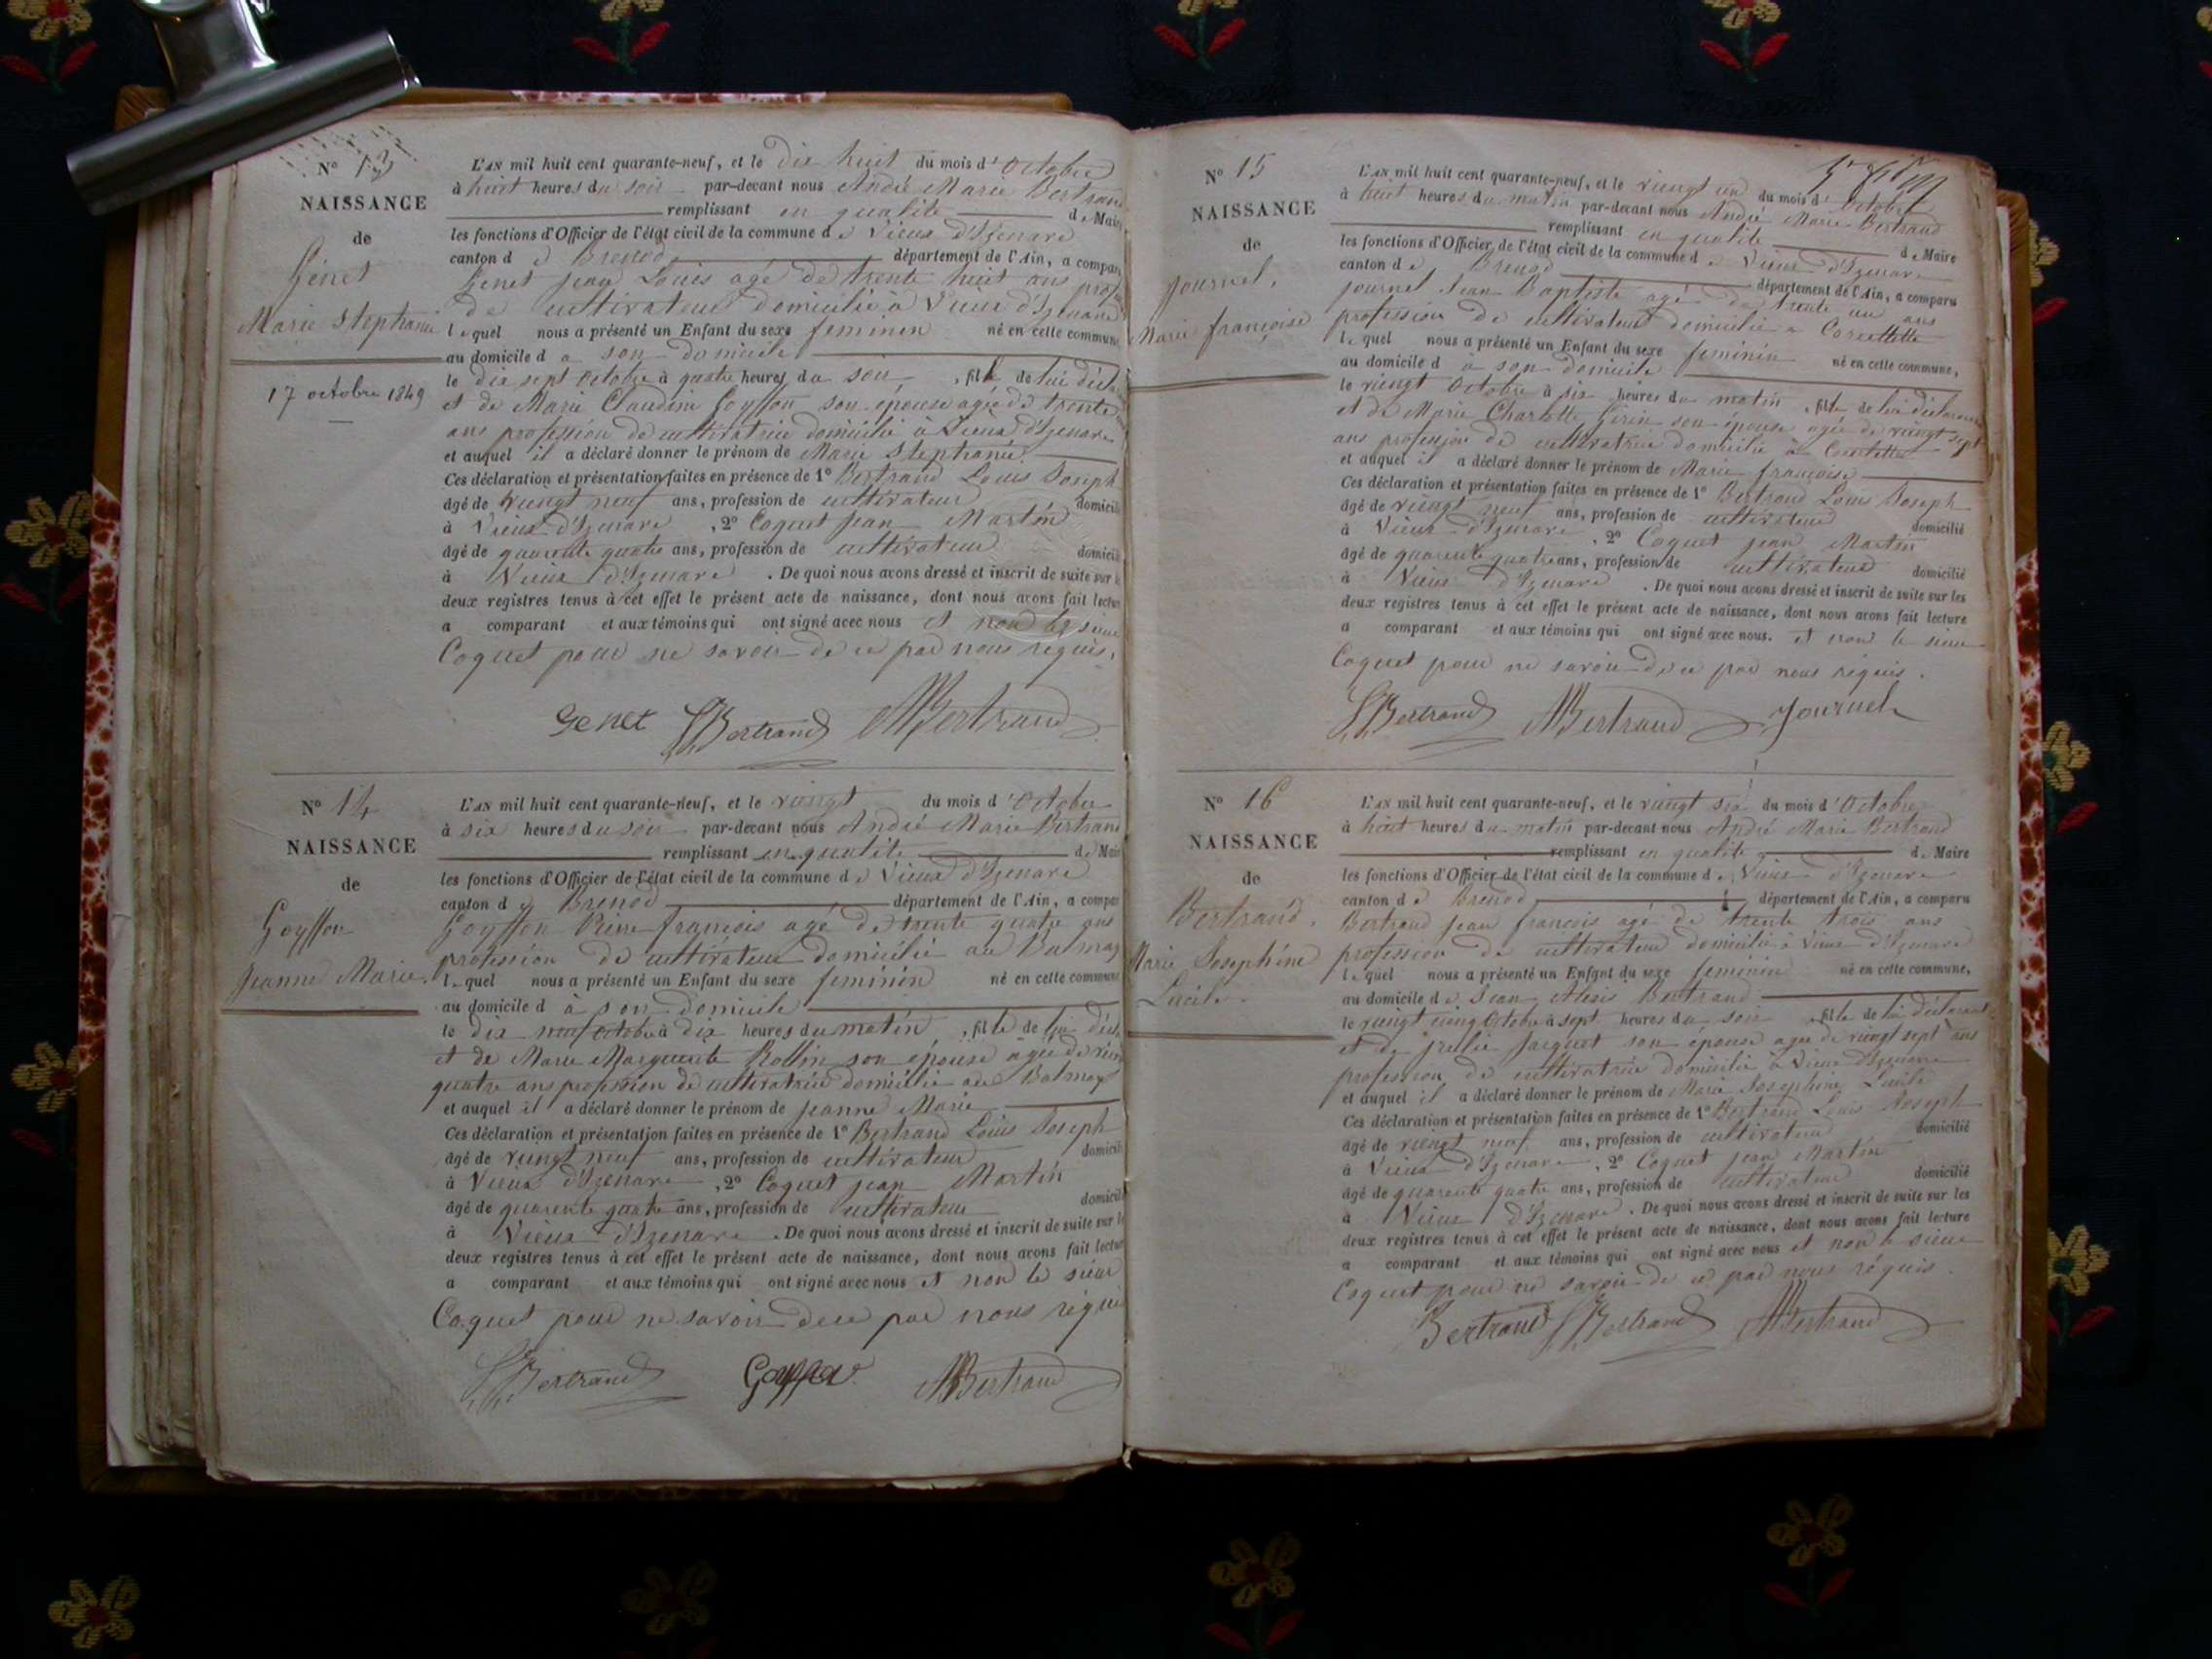 N° 13
NAISSANCE
de
Génet
Marie Stephanie
17 octobre 1849
L'AN mil huit cent quarante-neuf, et le dix huit du mois d'Octobre
à huit heures du soir par-devant nous André Marie Bertrand
remplissant en qualité de Maire
les fonctions d'Officier de l'état civil de la commune de Vieux d'Izenave
canton de Brenod département de l'Ain, a comparu
Genet jean Louis agé de trente huit ans prof
de cultivateur domicilié a Vieux d'Izenave
lequel nous a présenté un Enfant du sexe feminin né en cette commune
au domicile d a son domicile
le dix sept Octobre à quatre heures du soir, fille de lui décla
et de Marie Claudine Goyffon son épouse agée de trente
ans profession de cultivatrice domicilié à Vieux d'Izenave
et auquel il a déclaré donner le prénom de Marie Stephanie
Ces déclaration et présentation faites en présence de 1° Bertrand Louis Joseph
âgé de vingt neuf ans, profession de cultivateur domicilié
à Vieux d'Izenave, 2° Coquet jean Martin
âgé de quarente quatre ans, profession de cultivateur domicilié
à Vieux d'Izenave. De quoi nous avons dressé et inscrit de suite sur l
deux registres tenus à cet effet le présent acte de naissance, dont nous avons fait lecture
a comparant et aux témoins qui ont signé avec nous et non le sieur
Coquet pour ne savoir de ce par nous requis.
Genet LJBertrand AMBertrand
N° 14
NAISSANCE
de
Goyffon
Jeanne Marie.
L'AN mil huit cent quarante-neuf, et le vingt du mois d'Octobre
à six heures du soir par-devant nous André Marie Bertrand
remplissant en qualité de Maire
les fonctions d'Officier de l'état civil de la commune de Vieux d'Izenave
canton de Brenod département de l'Ain, a comparu
Goyffon Pierre françois agé de trente quatre ans
profession de cultivateur domicilié au Balmay
lequel nous a présenté un Enfant du sexe feminin né en cette commune
au domicile d à son domicile
le dix neuf octobre à dix heures du matin, fille de lui décla
et de Marie Marguerite Rollin son épouse agée de vingt
quatre ans profession de cultivatrice domicilié au Balmay
et auquel il a déclaré donner le prénom de jeanne Marie
Ces déclaration et présentation faites en présence de 1° Bertrand Louis Joseph
âgé de vingt neuf ans, profession de cultivateur domicilié
à Vieux d'Izenave, 2° Coquet jean Martin
âgé de quarente quatre ans, profession de cultivateur domicilié
à Vieux d'Izenave. De quoi nous avons dressé et inscrit de suite sur l
deux registres tenus à cet effet le présent acte de naissance, dont nous avons fait lecture
a comparant et aux témoins qui ont signé avec nous et non le sieur
Coquet pour ne savoir de ce par nous requis
LJBertrand Goyffon AMBertrand
N° 15
NAISSANCE
de
journel,
Marie françoise
L'AN mil huit cent quarante-neuf, et le vingt un du mois d'Octobre
à huit heures du matin par-devant nous André Marie Bertrand
remplissant en qualité de Maire
les fonctions d'Officier de l'état civil de la commune de Vieux d'Izenave
canton de Brenod département de l'Ain, a comparu
journel Jean Baptiste agé de trente un ans
profession de cultivateur domicilié a Corcellette
lequel nous a présenté un Enfant du sexe feminin né en cette commune,
au domicile d à son domicile
le vingt Octobre à six heures du matin, fille de lui déclarant
et de Marie Charlotte Girin son épouse agée de vingt sept
ans profession de cultivatrice domicilié à Corcellette
et auquel il a déclaré donner le prénom de Marie françoise
Ces déclaration et présentation faites en présence de 1° Bertrand Louis Joseph
âgé de vingt neuf ans, profession de cultivateur domicilié
à Vieux d'Izenave, 2° Coquet jean Martin
âgé de quarente quatre ans, profession de cultivateur domicilié
à Vieux d'Izenave. De quoi nous avons dressé et inscrit de suite sur les
deux registres tenus à cet effet le présent acte de naissance, dont nous avons fait lecture
a comparant et aux témoins qui ont signé avec nous. et non le sieur
Coquet pour ne savoir de ce par nous requis.
LJBertrand AMBertrand Journel
N° 16
NAISSANCE
de
Bertrand.
Marie Josephine
Lucile.
L'AN mil huit cent quarante-neuf, et le vingt six du mois d'Octobre
à huit heures du matin par-devant nous André Marie Bertrand
remplissant en qualité de Maire
les fonctions d'Officier de l'état civil de la commune de Vieux d'Izenave
canton de Brenod département de l'Ain, a comparu
Bertrand jean françois agé de trente trois ans
profession de cultivateur domicilié à Vieux d'Izenave
lequel nous a présenté un Enfant du sexe feminin né en cette commune,
au domicile de Jean Alexis Bertrand
le vingt cinq Octobre à sept heures du soir, fille de lui déclarant
et de julie jacquet son épouse agée de vingt sept ans
profession de cultivatrice domicilié à Vieux d'Izenave
et auquel il a déclaré donner le prénom de Marie Josephine Lucile
Ces déclaration et présentation faites en présence de 1° Bertrand Louis Joseph
âgé de vingt neuf ans, profession de cultivateur domicilié
à Vieux d'Izenave, 2° Coquet jean Martin
âgé de quarente quatre ans, profession de cultivateur domicilié
à Vieux d'Izenave. De quoi nous avons dressé et inscrit de suite sur les
deux registres tenus à cet effet le présent acte de naissance, dont nous avons fait lecture
a comparant et aux témoins qui ont signé avec nous et non le sieur
Coquet pour ne savoir de ce par nous requis.
Bertrand LJBertrand AMBertrand